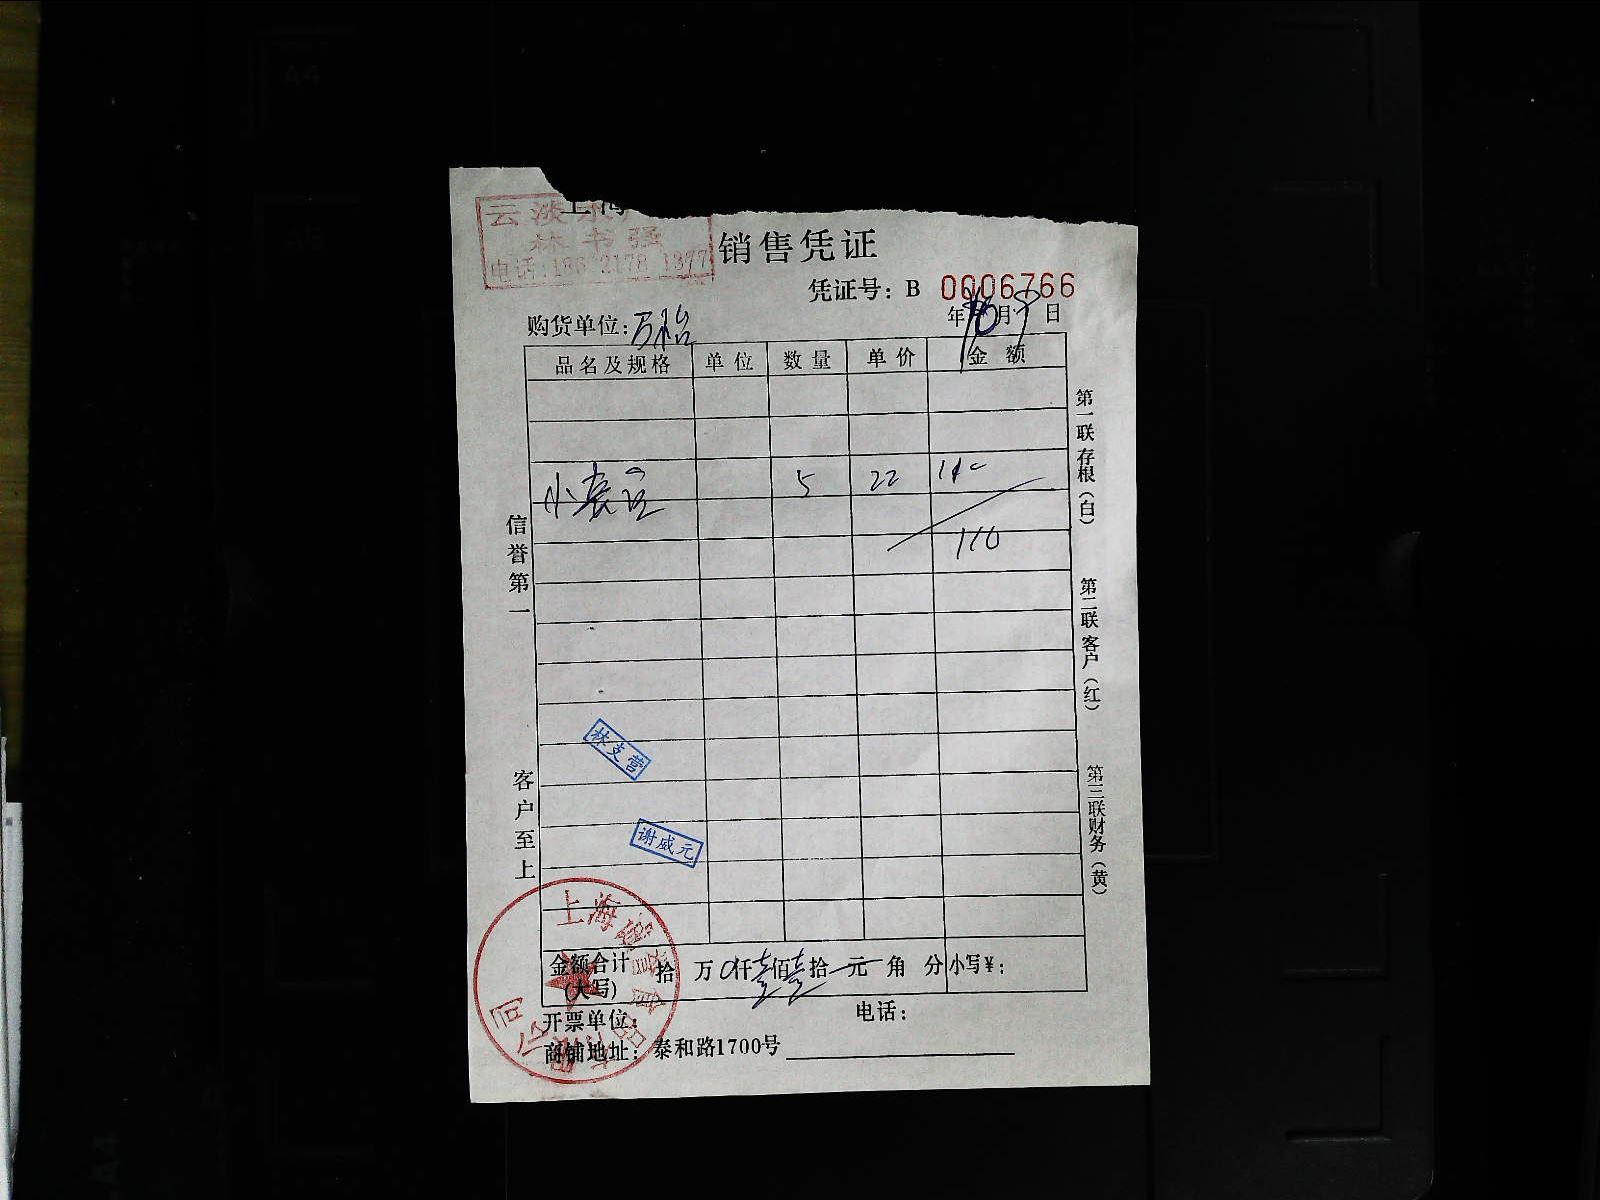 云淡
林书强
电话:186 2178 1377
销售凭证
凭证号: B 0006766
购货单位: 万裕
年10月9日
品名及规格 单位 数量 单价 金额
5 22 110
110
信誉第一
客户至上
第一联存根(白)
第二联客户(红)
第三联财务(黄)
林支营
谢威元
金额合计(大写) 拾 万 0仟壹佰壹拾 元 角 分 小写¥:
开票单位: 电话:
商铺地址: 泰和路1700号
上海
公司